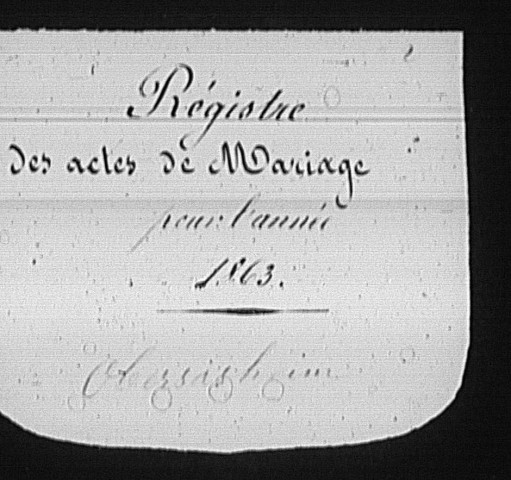 Régistre
des actes de Mariage
pour l'année
1863.
Obersaasheim